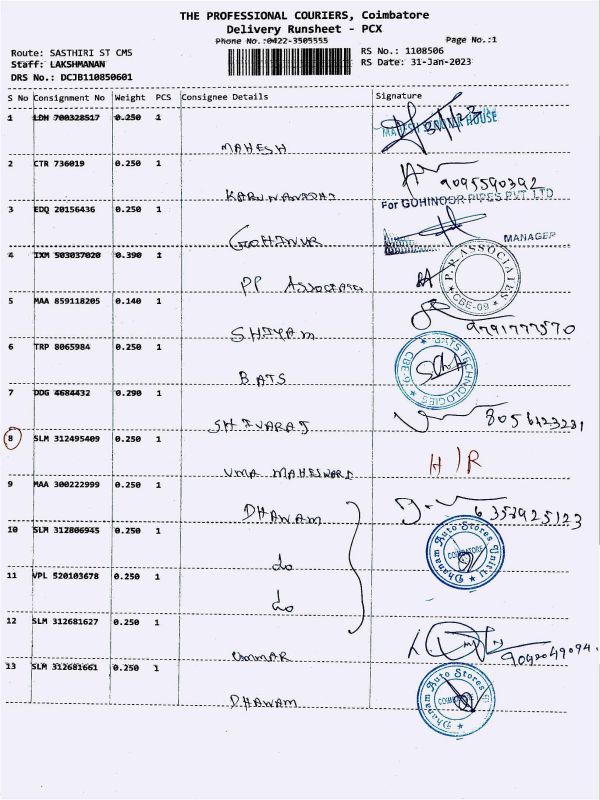 THE PROFESSIONAL COURIERS, Coimbatore
Delivery Runsheet - PCX
Phone No.:0422-3505555
Page No.:1
Route: SASTHIRI ST CMS
RS No.: 1108506
Staff: LAKSHMANAN
RS Date: 31-Jan-2023
DRS No.: DCJB110850601
S No Consignment No Weight PCS Consignee Details Signature
1 LDH 700328517 0.250 1
31/1/23
HOUSE
MAHESH
2 CTR 736019 0.250 1
9095590392
3 EDQ 20156436 0.250 1
For GOHINOOR PIPES PVT. LTD
MANAGER
GOOHINUR
4 IXM 503037020 0.390 1
P.P. ASSOCIATES
CBE-09
PP ASSOCIATES
5 MAA 859118205 0.140 1
9791777570
SHIYAM
6 TRP 8065984 0.250 1
BATS TECHNOLOGIES
CBE-9
BATS
7 DDG 4684432 0.290 1
8056123231
SHIVARAJ
8 SLM 312495409 0.250 1
H/R
UMA MAHESWARI
9 MAA 300222999 0.250 1
6358925123
DHANAM
10 SLM 312806945 0.250 1
Dhanam Auto Stores Unit
COIMBATORE
do
11 VPL 520103678 0.250 1
do
12 SLM 312681627 0.250 1
9092049094.
UMMAR
13 SLM 312681661 0.250 1
Dhanam Auto Stores
DHANAM